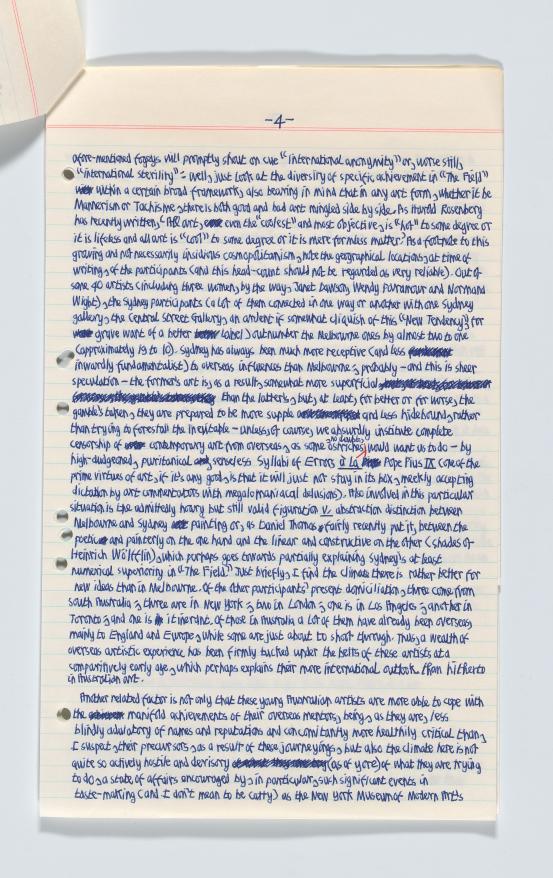 -4-
afore-mentioned fogeys will promptly shout on cue "International anonymity" or, worse still,
"international sterility" - well, just look at the diversity of specific achievement in "The Field"
within a certain broad framework, also bearing in mind that in any art form, whether it be
Mannerism or Tachisme, there is both good and bad art mingled side by side. As Harold Rosenberg
has recently written, "All art, even the "coolest" and most objective, is "hot" to some degree or
it is lifeless and all art is "cool" to some degree or it is mere formless matter". As a footnote to this
growing and not necessarily insidious cosmopolitanism, note the geographical locations, at time of
writing, of the participants (and this head-count should not be regarded as very reliable). Out of
some 40 artists (including three women, by the way, Janet Dawson, Wendy Paramour and Normana
Wight), the Sydney participants (a lot of them connected in one way or another with one Sydney
gallery, the Central Street Gallery, an ardent if somewhat cliquish of this "New Tendency", for
grave want of a better label) outnumber the Melbourne ones by almost two to one
(approximately 19 to 10). Sydney has always been much more receptive (and less
inwardly fundamentalist) to overseas influences than Melbourne, probably - and this is sheer
speculation - the former's art is, as a result, somewhat more superficial
than the latter's, but, at least, for better or for worse, the
gamble's taken, they are prepared to be more supple and less hidebound, rather
than trying to forestall the inevitable - unless, of course, we absurdly institute complete
censorship of contemporary art from overseas, as some ostriches no doubt would want us to do - by
high-dudgeoned, puritanical and senseless Syllabi of Errors à la Pope Pius IX (one of the
prime virtues of art, if it's any good, is that it will just not stay in its box, meekly accepting
dictation by art commentators with megalomaniacal delusions). Also involved in this particular
situation is the admittedly hoary but still valid figuration v. abstraction distinction between
Melbourne and Sydney painting or, as Daniel Thomas fairly recently put it, between the
poetic and painterly on the one hand and the linear and constructive on the other (shades of
Heinrich Wölfflin), which perhaps goes towards partially explaining Sydney's at least
numerical superiority in "The Field". Just briefly, I find the climate there is rather better for
new ideas than in Melbourne. Of the other participants' present domiciliation, three come from
South Australia, three are in New York, two in London, one is in Los Angeles, another in
Toronto, and one is itinerant. Of those in Australia a lot of them have already been overseas,
mainly to England and Europe, while some are just about to shoot through. Thus, a wealth of
overseas artistic experience has been firmly tucked under the belts of these artists at a
comparitively early age, which perhaps explains their more international outlook than hitherto
in Australian art.
Another related factor is not only that these young Australian artists are more able to cope with
the manifold achievements of their overseas mentors, being, as they are, less
blindly adulatory of names and reputations and concomitantly more healthily critical than,
I suspect, their precursors, as a result of these journeyings, but also the climate here is not
quite so actively hostile and derisory (as of yore) of what they are trying
to do, a state of affairs encouraged by, in particular, such significant events in
taste-making (and I don't mean to be catty) as the New York Museum of Modern Art's